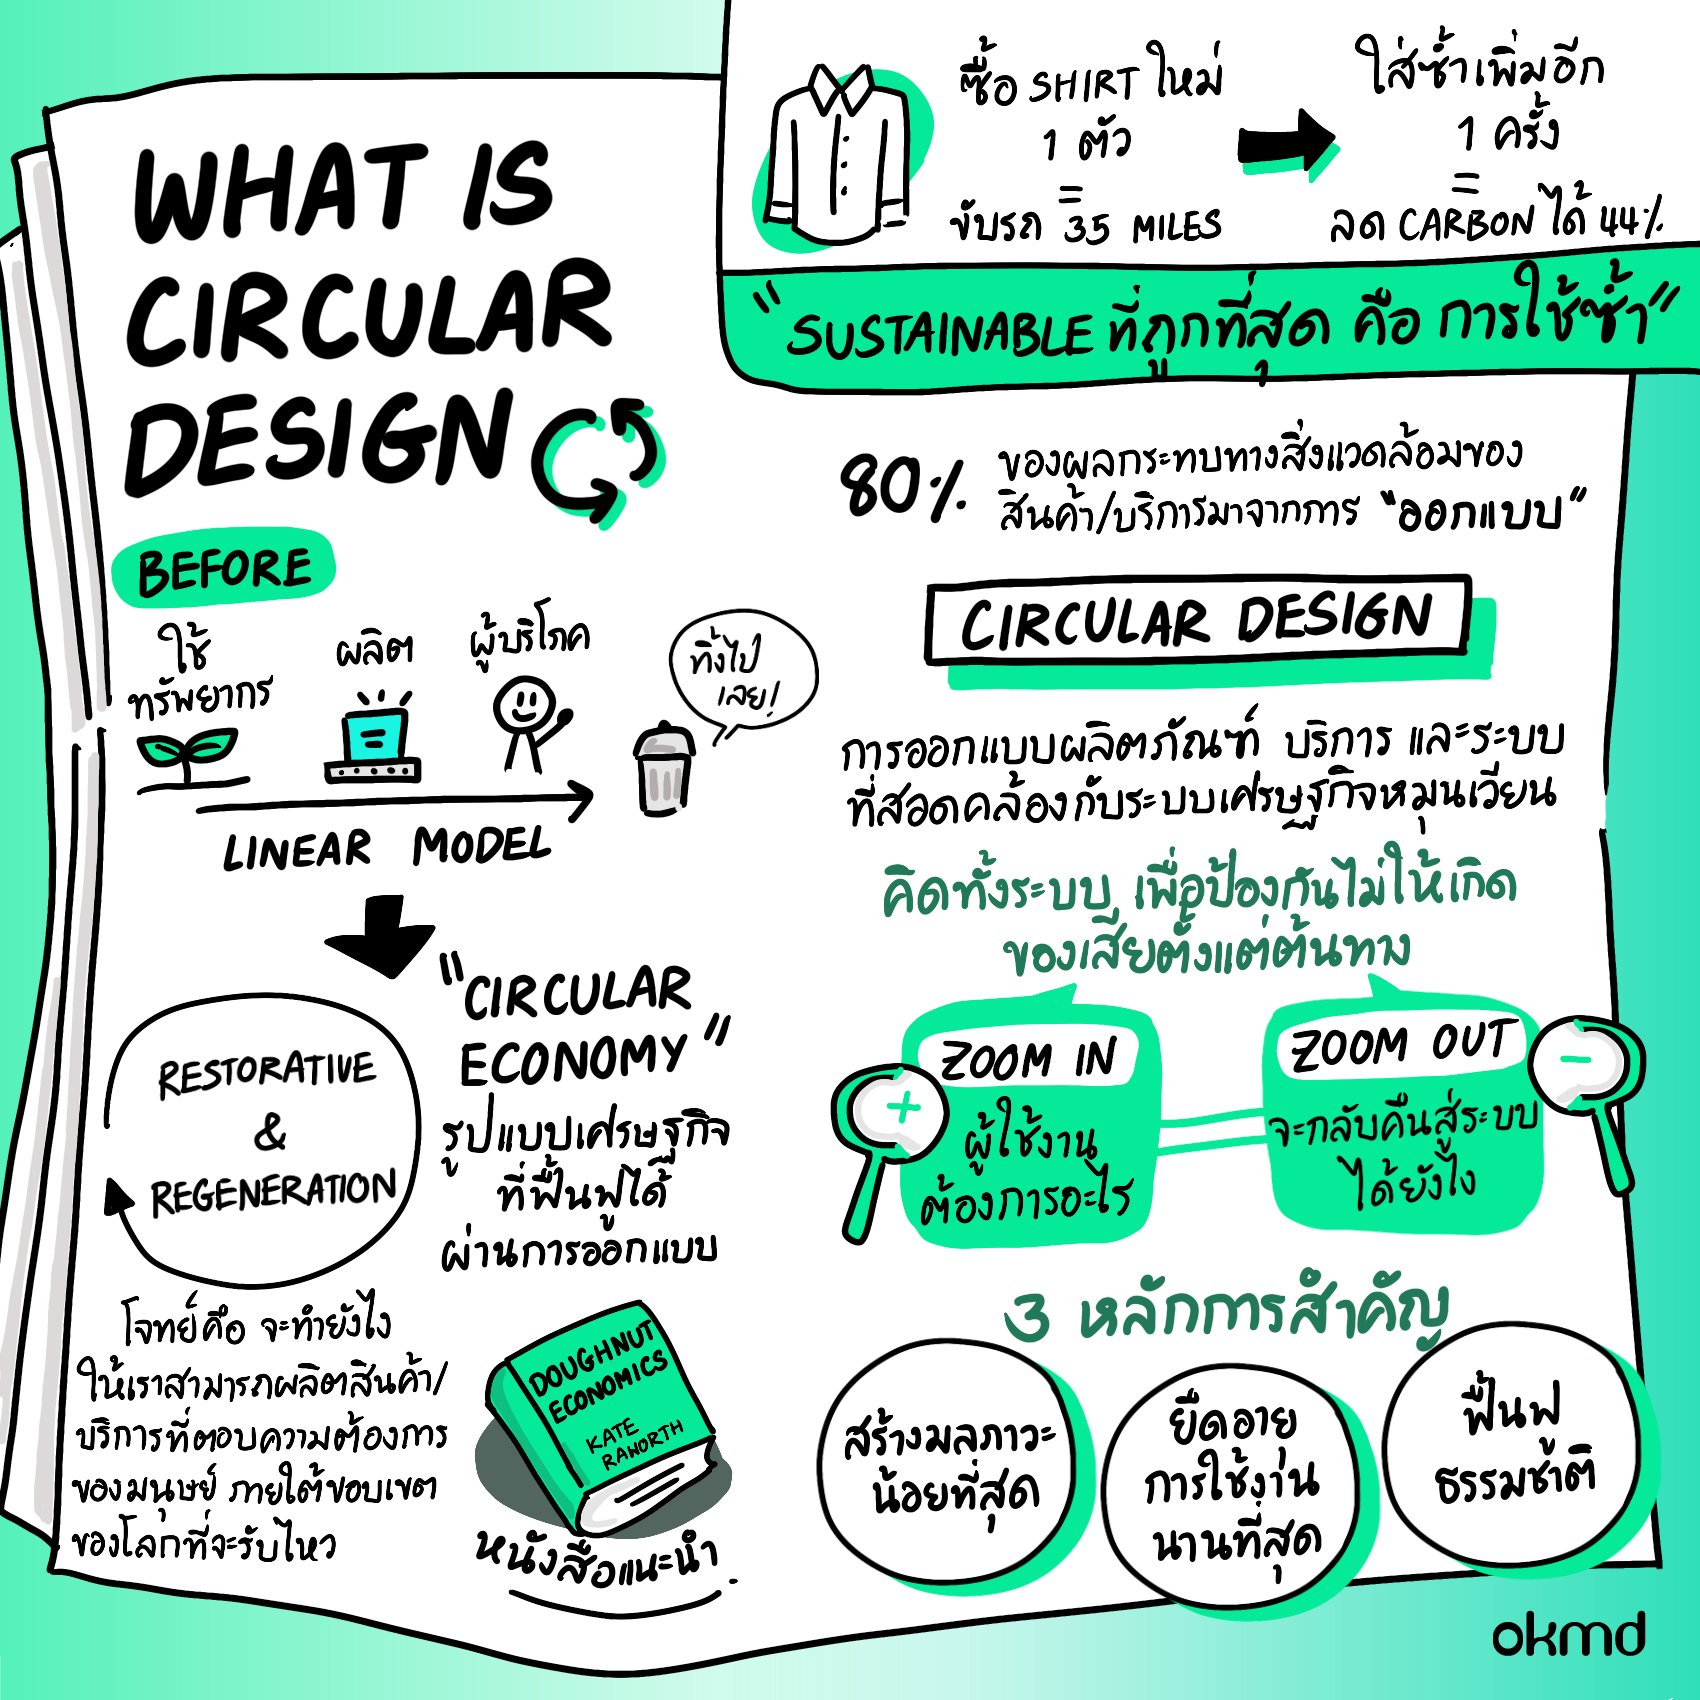 WHAT IS
CIRCULAR
DESIGN
ซื้อ SHIRT ใหม่
1 ตัว
=
ขับรถ 35 MILES
ใส่ซ้ำเพิ่มอีก
1 ครั้ง
=
ลด CARBON ได้ 44%
"SUSTAINABLE ที่ถูกที่สุด คือ การใช้ซ้ำ"
BEFORE
ใช้
ทรัพยากร
ผลิต
ผู้บริโภค
ทิ้งไป
เลย!
LINEAR MODEL
RESTORATIVE
&
REGENERATION
"CIRCULAR
ECONOMY"
รูปแบบเศรษฐกิจ
ที่ฟื้นฟูได้
ผ่านการออกแบบ
โจทย์คือ จะทำยังไง
ให้เราสามารถผลิตสินค้า/
บริการที่ตอบความต้องการ
ของมนุษย์ ภายใต้ขอบเขต
ของโลกที่จะรับไหว
DOUGHNUT
ECONOMICS
KATE
RAWORTH
หนังสือแนะนำ
80% ของผลกระทบทางสิ่งแวดล้อมของ
สินค้า/บริการมาจากการ "ออกแบบ"
CIRCULAR DESIGN
การออกแบบผลิตภัณฑ์ บริการ และระบบ
ที่สอดคล้องกับระบบเศรษฐกิจหมุนเวียน
คิดทั้งระบบ เพื่อป้องกันไม่ให้เกิด
ของเสียตั้งแต่ต้นทาง
ZOOM IN
ผู้ใช้งาน
ต้องการอะไร
ZOOM OUT
จะกลับคืนสู่ระบบ
ได้ยังไง
3 หลักการสำคัญ
สร้างมลภาวะ
น้อยที่สุด
ยืดอายุ
การใช้งาน
นานที่สุด
ฟื้นฟู
ธรรมชาติ
okmd